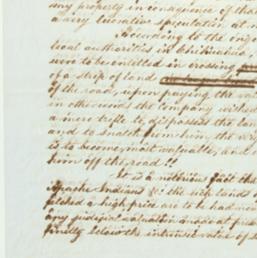 my property in consequence of this
a very lucrative speculation, at
According to the orig
local authorities in Chihuahua,
were to be entitled in crossing
of a strip of land
of the road, upon paying the
in other words the company wished
a mere trifle to dispossess the lan
and to snatch from him, the
is to become most valuable, and
him off the road!!
It is a notorious fact tha
Apache Indians &c the rich lands
fetched a high price are to be had now
any judicial valuation made at pres
finitely below the intrinsic value of